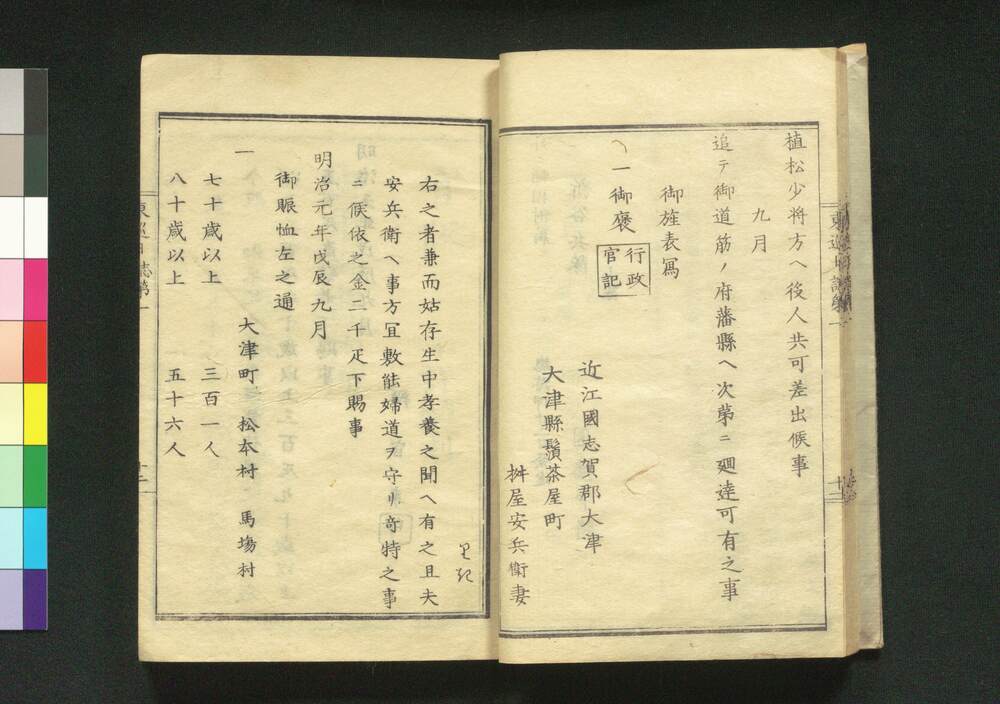 植松少将方ヘ役人共可差出候事
九月
追テ御道筋ノ府藩縣ヘ次第ニ廻達可有之事
御旌表冩
一御褒
行政
官記
近江國志賀郡大津
大津縣鬚茶屋町
桝屋安兵衛妻
右之者兼而姑存生中孝養之聞ヘ有之且夫
安兵衛ヘ事方冝敷能婦道ヲ守リ奇特之事
ニ候依之金二千疋下賜事
明治元年戊辰九月
御賑恤左之通
一
大津町 松本村 馬塲村
七十歳以上 三百一人
八十歳以上 五十六人